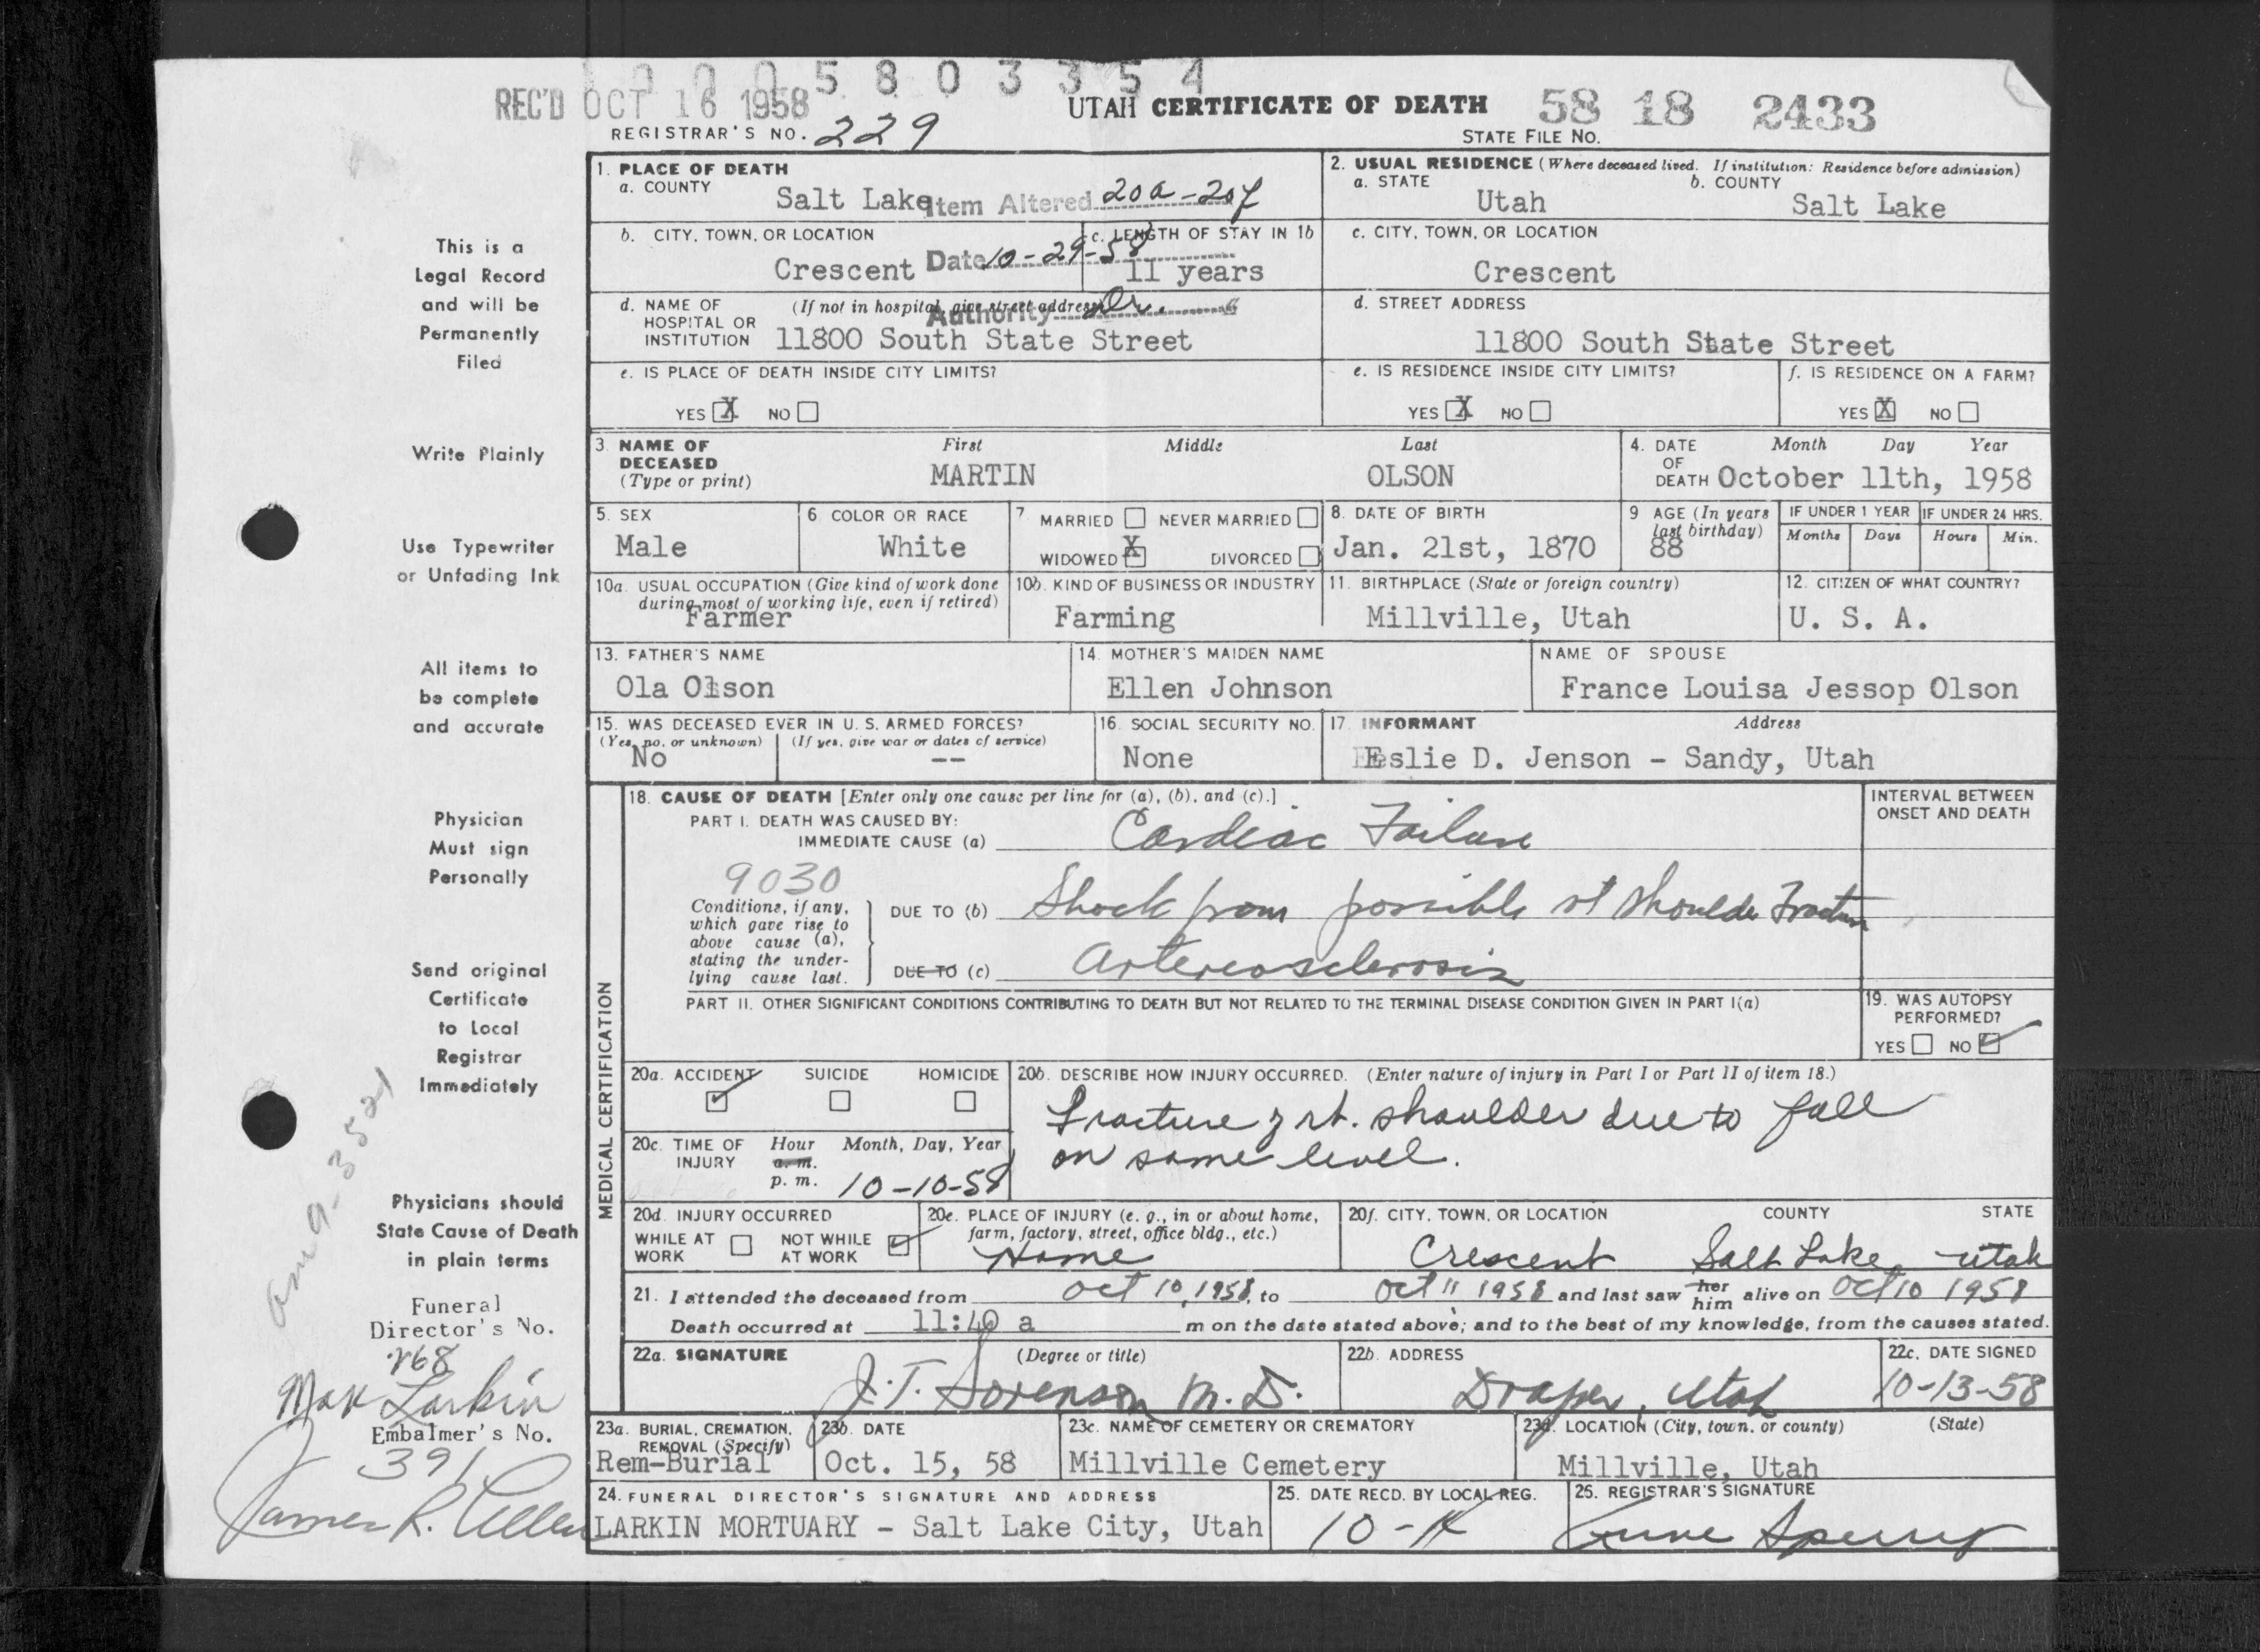 00058 0 3 3 5 4
REC'D OCT 16 1958
UTAH CERTIFICATE OF DEATH 58 18 2433
REGISTRAR'S NO. 229
STATE FILE NO.
This is a
Legal Record
and will be
Permanently
Filed
Write Plainly
Use Typewriter
or Unfading Ink
All items to
be complete
and accurate
Physician
Must sign
Personally
Send original
Certificate
to Local
Registrar
Immediately
Physicians should
State Cause of Death
in plain terms
Funeral
Director's No.
268
Max Larkin
Embalmer's No.
391
James R. Allen
1. PLACE OF DEATH
a. COUNTY
Salt Lake
Item Altered 20a-20f
b. CITY, TOWN, OR LOCATION
Crescent
Date 10-29-58
c. LENGTH OF STAY IN 1b
11 years
d. NAME OF HOSPITAL OR INSTITUTION (If not in hospital, give street address)
Authority Dr.
11800 South State Street
e. IS PLACE OF DEATH INSIDE CITY LIMITS?
YES X NO
2. USUAL RESIDENCE (Where deceased lived. If institution: Residence before admission)
a. STATE
Utah
b. COUNTY
Salt Lake
c. CITY, TOWN, OR LOCATION
Crescent
d. STREET ADDRESS
11800 South State Street
e. IS RESIDENCE INSIDE CITY LIMITS?
YES X NO
f. IS RESIDENCE ON A FARM?
YES X NO
3. NAME OF DECEASED (Type or print)
First Middle Last
MARTIN OLSON
4. DATE OF DEATH Month Day Year
October 11th, 1958
5. SEX
Male
6. COLOR OR RACE
White
7 MARRIED NEVER MARRIED
WIDOWED X DIVORCED
8. DATE OF BIRTH
Jan. 21st, 1870
9 AGE (In years last birthday)
88
IF UNDER 1 YEAR IF UNDER 24 HRS.
Months Days Hours Min.
10a. USUAL OCCUPATION (Give kind of work done during most of working life, even if retired)
Farmer
10b. KIND OF BUSINESS OR INDUSTRY
Farming
11. BIRTHPLACE (State or foreign country)
Millville, Utah
12. CITIZEN OF WHAT COUNTRY?
U. S. A.
13. FATHER'S NAME
Ola Olson
14. MOTHER'S MAIDEN NAME
Ellen Johnson
NAME OF SPOUSE
France Louisa Jessop Olson
15. WAS DECEASED EVER IN U. S. ARMED FORCES?
(Yes, no, or unknown) (If yes, give war or dates of service)
No --
16. SOCIAL SECURITY NO.
None
17. INFORMANT Address
Eslie D. Jenson - Sandy, Utah
MEDICAL CERTIFICATION
18. CAUSE OF DEATH [Enter only one cause per line for (a), (b), and (c).]
INTERVAL BETWEEN ONSET AND DEATH
PART I. DEATH WAS CAUSED BY:
IMMEDIATE CAUSE (a) Cardiac Failure
9030
Conditions, if any, which gave rise to above cause (a), stating the underlying cause last.
DUE TO (b) Shock from possible rt shoulder Fracture
DUE TO (c) Artereosclerosis
PART II. OTHER SIGNIFICANT CONDITIONS CONTRIBUTING TO DEATH BUT NOT RELATED TO THE TERMINAL DISEASE CONDITION GIVEN IN PART I(a)
19. WAS AUTOPSY PERFORMED?
YES NO ✓
20a. ACCIDENT ✓ SUICIDE HOMICIDE
20b. DESCRIBE HOW INJURY OCCURRED. (Enter nature of injury in Part I or Part II of item 18.)
Fracture of rt. shoulder due to fall
on same level.
20c. TIME OF INJURY Hour a. m. p. m. Month, Day, Year
10-10-58
20d. INJURY OCCURRED
WHILE AT WORK NOT WHILE AT WORK ✓
20e. PLACE OF INJURY (e. g., in or about home, farm, factory, street, office bldg., etc.)
Home
20f. CITY, TOWN, OR LOCATION COUNTY STATE
Crescent Salt Lake Utah
21. I attended the deceased from Oct 10, 1958, to Oct 11 1958 and last saw her him alive on Oct 10 1958
Death occurred at 11:40 a m on the date stated above; and to the best of my knowledge, from the causes stated.
22a. SIGNATURE (Degree or title)
J. T. Sorenson M. D.
22b. ADDRESS
Draper, Utah
22c. DATE SIGNED
10-13-58
23a. BURIAL, CREMATION, REMOVAL (Specify)
Rem-Burial
23b. DATE
Oct. 15, 58
23c. NAME OF CEMETERY OR CREMATORY
Millville Cemetery
23d. LOCATION (City, town, or county) (State)
Millville, Utah
24. FUNERAL DIRECTOR'S SIGNATURE AND ADDRESS
LARKIN MORTUARY - Salt Lake City, Utah
25. DATE RECD. BY LOCAL REG.
10-14
25. REGISTRAR'S SIGNATURE
June Sperry